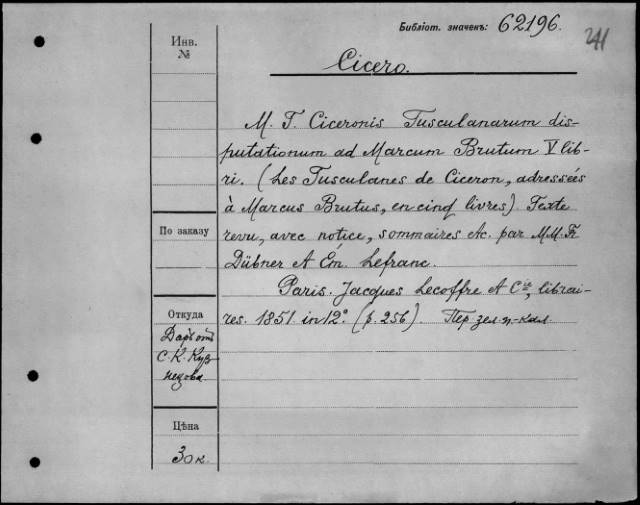 Библіот. значекъ: 62196.
241
Инв.
№
Cicero.
M. T. Ciceronis Tusculanarum dis-
putationum ad Marcum Brutum V lib-
ri. (Les Tusculanes de Ciceron, adressées
à Marcus Brutus, en cinq livres) Texte
revu, avec notice, sommaires etc. par M.M. Fr.
Dübner et Ém. Lefranc.
Paris. Jacques Lecoffre et Cie, librai-
res. 1851. in 12°. (p. 256) Пер. зел. п.-кал.
По заказу
Откуда
Даръ отъ
С. К. Куз-
нецова
Цѣна
30 к.